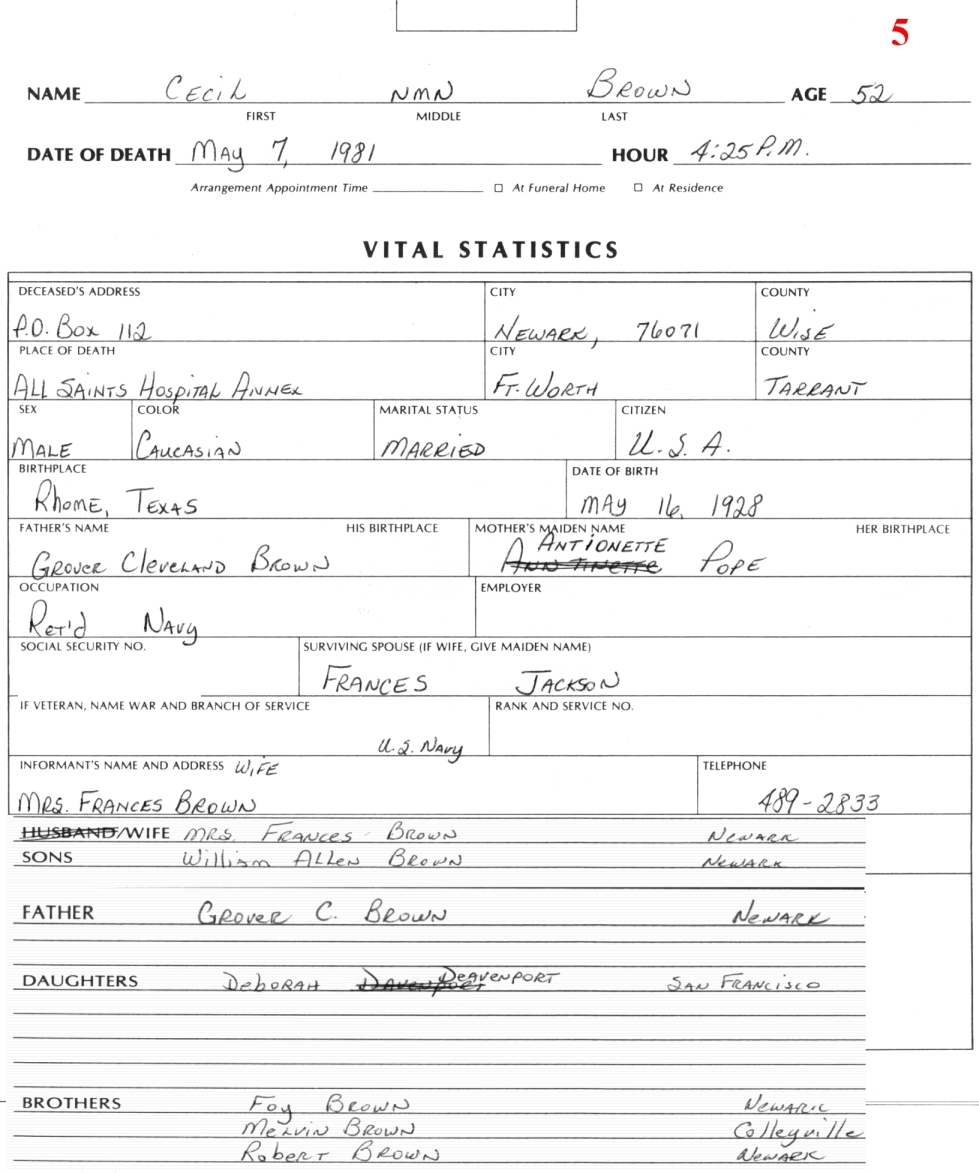 5
NAME Cecil NMN Brown AGE 52
FIRST MIDDLE LAST
DATE OF DEATH May 7, 1981 HOUR 4:25 P.M.
Arrangement Appointment Time At Funeral Home At Residence
VITAL STATISTICS
DECEASED'S ADDRESS CITY COUNTY
P.O. Box 112 Newark, 76071 Wise
PLACE OF DEATH CITY COUNTY
All Saints Hospital Annex Ft. Worth Tarrant
SEX COLOR MARITAL STATUS CITIZEN
Male Caucasian Married U.S.A.
BIRTHPLACE DATE OF BIRTH
Rhome, Texas May 16, 1928
FATHER'S NAME HIS BIRTHPLACE MOTHER'S MAIDEN NAME HER BIRTHPLACE
Antionette
Grover Cleveland Brown Ann Tinette Pope
OCCUPATION EMPLOYER
Ret'd Navy
SOCIAL SECURITY NO. SURVIVING SPOUSE (IF WIFE, GIVE MAIDEN NAME)
Frances Jackson
IF VETERAN, NAME WAR AND BRANCH OF SERVICE RANK AND SERVICE NO.
U.S. Navy
INFORMANT'S NAME AND ADDRESS Wife TELEPHONE
Mrs. Frances Brown 489-2833
HUSBAND/WIFE Mrs. Frances Brown Newark
SONS William Allen Brown Newark
FATHER Grover C. Brown Newark
DAUGHTERS Deborah Davenport Deavenport San Francisco
BROTHERS Foy Brown Newark
Melvin Brown Colleyville
Robert Brown Newark